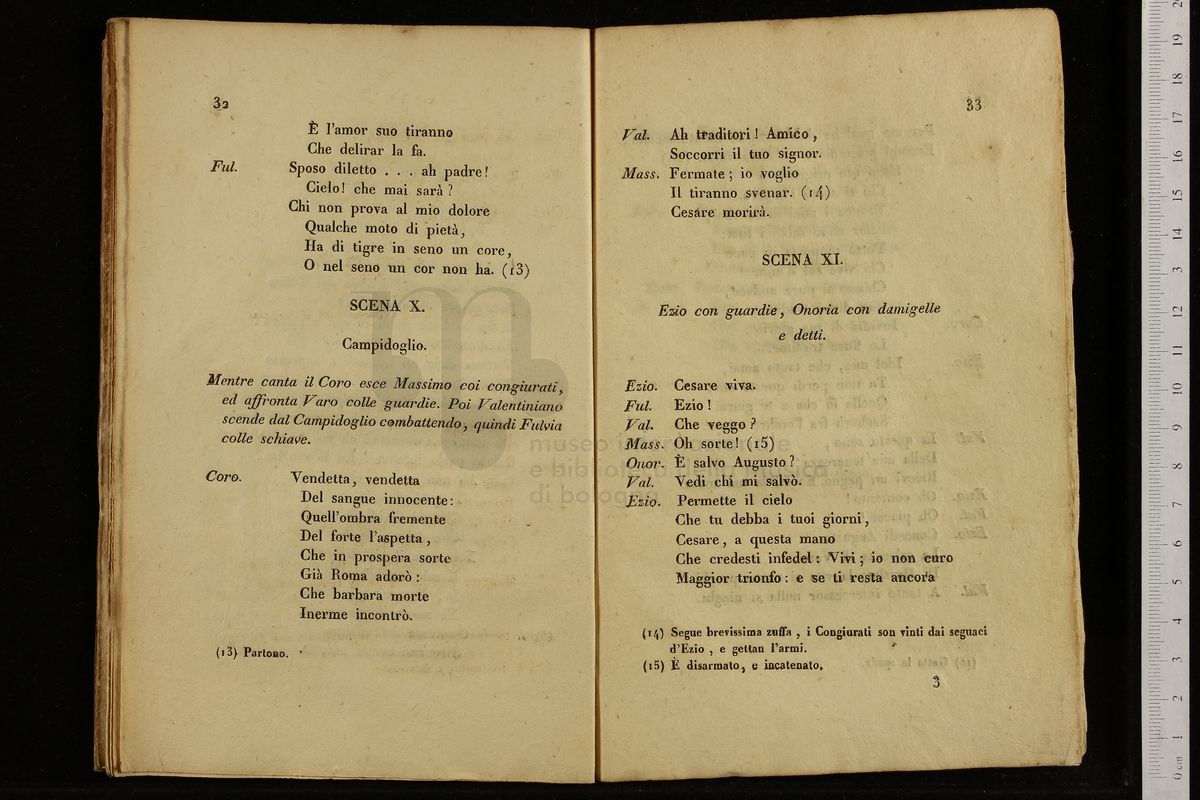 32
È l'amor suo tiranno
Che delirar la fa.
Ful. Sposo diletto . . . ah padre!
Cielo! che mai sarà?
Chi non prova al mio dolore
Qualche moto di pietà,
Ha di tigre in seno un core,
O nel seno un cor non ha. (13)
SCENA X.
Campidoglio.
Mentre canta il Coro esce Massimo coi congiurati,
ed affronta Varo colle guardie. Poi Valentiniano
scende dal Campidoglio combattendo, quindi Fulvia
colle schiave.
Coro. Vendetta, vendetta
Del sangue innocente:
Quell'ombra fremente
Del forte l'aspetta,
Che in prospera sorte
Già Roma adorò:
Che barbara morte
Inerme incontrò.
(13) Partono.
33
Val. Ah traditori! Amico,
Soccorri il tuo signor.
Mass. Fermate; io voglio
Il tiranno svenar. (14)
Cesare morirà.
SCENA XI.
Ezio con guardie, Onoria con damigelle
e detti.
Ezio. Cesare viva.
Ful. Ezio!
Val. Che veggo?
Mass. Oh sorte! (15)
Onor. È salvo Augusto?
Val. Vedi chi mi salvò.
Ezio. Permette il cielo
Che tu debba i tuoi giorni,
Cesare, a questa mano
Che credesti infedel: Vivi; io non curo
Maggior trionfo: e se ti resta ancora
(14) Segue brevissima zuffa, i Congiurati son vinti dai seguaci
d'Ezio, e gettan l'armi.
(15) È disarmato, e incatenato.
3
museo internazionale
e biblioteca della musica
di bologna
0 cm 1 2 3 4 5 6 7 8 9 10 11 12 13 14 15 16 17 18 19 20